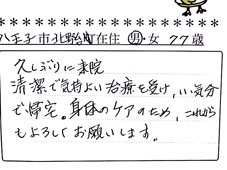 八王子市北野町在住 男・女 77歳
久しぶりに来院
清潔で気持よい治療を受け、いい気分
で帰宅。身体のケアのため、これから
もよろしくお願いします。